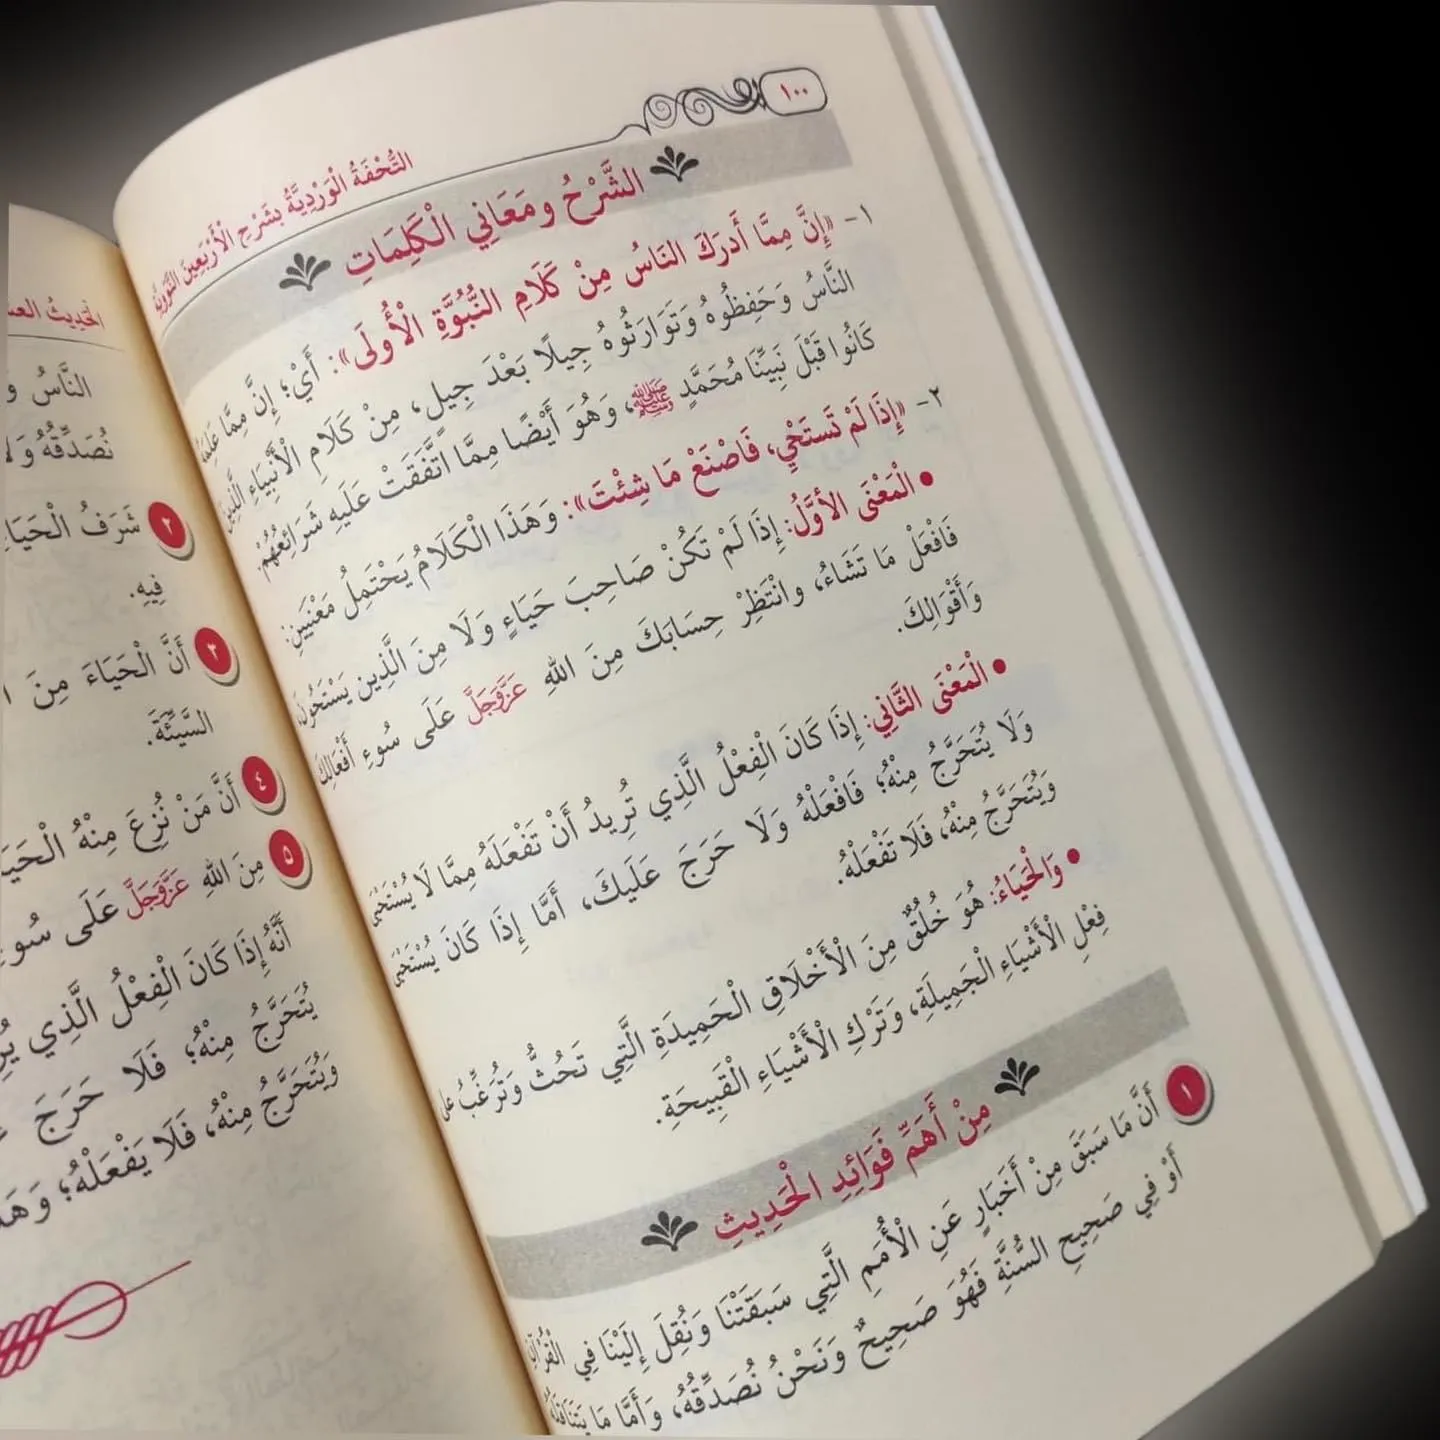 ١٠٠
التُّحْفَةُ الْوَرْدِيَّةُ بِشَرْحِ الْأَرْبَعِينَ النَّوَوِيَّةِ
الشَّرْحُ ومَعَانِي الْكَلِمَاتِ
١- «إِنَّ مِمَّا أَدرَكَ النَاسُ مِنْ كَلَامِ النُّبُوَّةِ الْأُولَى»: أَيْ؛ إِنَّ مِمَّا عَلِمَهُ
النَّاسُ وَحَفِظُوهُ وَتَوَارَثُوهُ جِيلًا بَعْدَ جِيلٍ، مِنْ كَلَامِ الْأَنْبِيَاءِ الَّذِينَ
كَانُوا قَبْلَ نَبِيِّنَا مُحَمَّدٍ ﷺ، وَهُوَ أَيْضًا مِمَّا اتَّفَقَتْ عَلَيهِ شَرَائِعُهُمْ.
٢- «إِذَا لَمْ تَستَحْيِ، فَاصْنَعْ مَا شِئْتَ»: وَهَذَا الْكَلَامُ يَحْتَمِلُ مَعْنَيَينِ:
• الْمَعْنَى الأوَّلُ: إِذَا لَمْ تَكُنْ صَاحِبَ حَيَاءٍ وَلَا مِنَ الَّذِين يَسْتَحُونَ،
فَافْعَلْ مَا تَشَاءُ، وانْتَظِرْ حِسَابَكَ مِنَ اللهِ عَزَّوَجَلَّ عَلَى سُوءِ أَفْعَالِكَ
وَأَقْوَالِكَ.
• الْمَعْنَى الثَّانِي: إِذَا كَانَ الْفِعْلُ الَّذِي تُرِيدُ أَنْ تَفْعَلَهُ مِمَّا لَا يُسْتَحْيَى
وَلَا يُتَحَرَّجُ مِنْهُ؛ فَافْعَلْهُ وَلَا حَرَجَ عَلَيكَ، أَمَّا إِذَا كَانَ يُسْتَحْيَى
وَيُتَحَرَّجُ مِنْهُ، فَلَا تَفْعَلْهُ.
• وَالْحَيَاءُ: هُوَ خُلُقٌ مِنَ الْأَخْلَاقِ الْحَمِيدَةِ الَّتِي تَحُثُّ وَتُرَغِّبُ عَلى
فِعْلِ الْأَشْيَاءِ الْجَمِيلَةِ، وَتَرْكِ الْأَشْيَاءِ الْقَبِيحَةِ.
مِنْ أَهَمِّ فَوَائِدِ الْحَدِيثِ
١ أَنَّ مَا سَبَقَ مِنْ أَخَبَارٍ عَنِ الْأُمَمِ الَّتِي سَبَقَتْنَا وَنُقِلَ إِلَيْنَا فِي الْقُرْآنِ
أَوْ فِي صَحِيحِ السُّنَّةِ فَهُوَ صَحِيحٌ وَنَحْنُ نُصَدِّقُهُ، وَأَمَّا مَا يَتَنَاقَلُهُ
الْحَدِيثُ
النَّاسُ
نُصَدِّقُهُ وَلَا
٢ شَرَفُ الْحَيَاءِ
فِيهِ.
٣ أَنَّ الْحَيَاءَ مِنَ
السَّيِّئَةَ.
٤ أَنَّ مَنْ نُزِعَ مِنْهُ
مِنَ اللهِ عَزَّوَجَلَّ عَلَى سُوءِ
٥ أَنَّهُ إِذَا كَانَ الْفِعْلُ الَّذِي
يُتَحَرَّجُ مِنْهُ؛ فَلَا حَرَجَ
وَيُتَحَرَّجُ مِنْهُ، فَلَا يَفْعَلْهُ؛